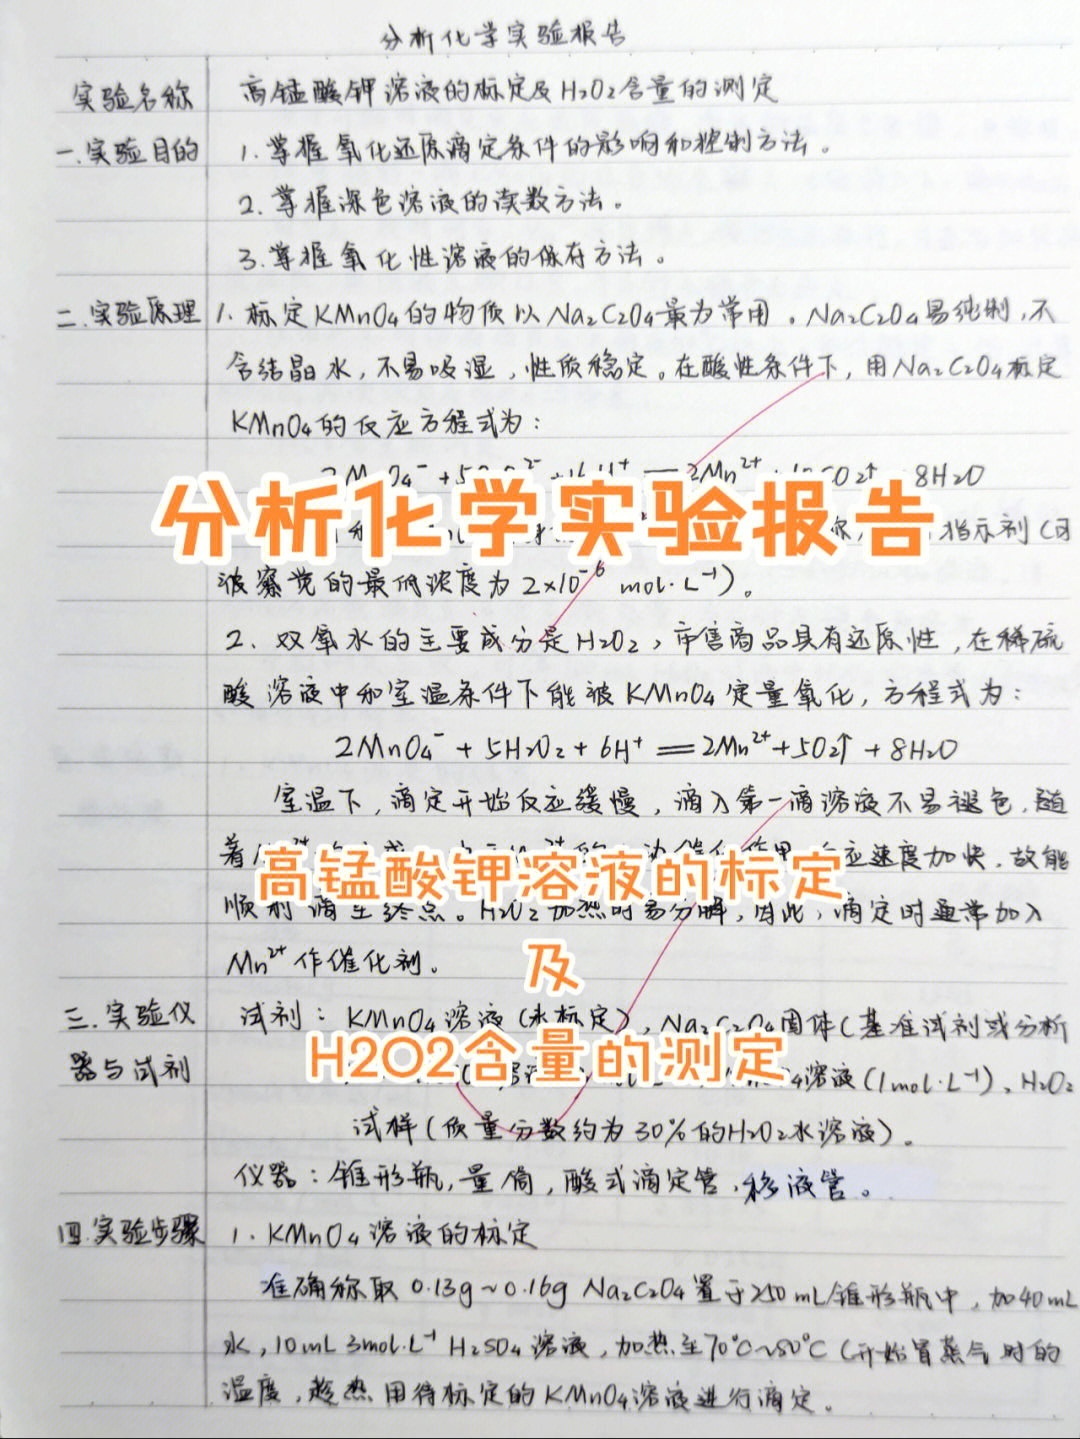 分析化学实验报告
实验名称 高锰酸钾溶液的标定及H2O2含量的测定
一.实验目的 1.掌握氧化还原滴定条件的影响和控制方法。
2.掌握深色溶液的读数方法。
3.掌握氧化性溶液的保存方法。
二.实验原理 1.标定KMnO4的物质以Na2C2O4最为常用。Na2C2O4易纯制,不
含结晶水,不易吸湿,性质稳定。在酸性条件下,用Na2C2O4标定
KMnO4的反应方程式为:
2Mn2+ 8H2O
分析化学实验报告
指示剂(可
被察觉的最低浓度为2×10-6 mol·L-1)。
2.双氧水的主要成分是H2O2,市售商品具有还原性,在稀硫
酸溶液中和室温条件下能被KMnO4定量氧化,方程式为:
2MnO4- + 5H2O2 + 6H+ = 2Mn2+ + 5O2↑ + 8H2O
室温下,滴定开始反应缓慢,滴入第一滴溶液不易褪色,随
着 应速度加快,故能
高锰酸钾溶液的标定
顺利滴至终点。H2O2加热时易分解,因此,滴定时通常加入
及
Mn2+作催化剂。
三.实验仪 试剂:KMnO4溶液(未标定),Na2C2O4固体(基准试剂或分析
H2O2含量的测定
器与试剂 溶液(1mol·L-1)、H2O2
试样(质量分数约为30%的H2O2水溶液)。
仪器:锥形瓶,量筒,酸式滴定管,移液管。
四.实验步骤 1.KMnO4溶液的标定
准确称取0.13g~0.16g Na2C2O4置于250mL锥形瓶中,加40mL
水,10mL 3mol·L-1 H2SO4溶液,加热至70°C~80°C(开始冒蒸气时的
温度,趁热用待标定的KMnO4溶液进行滴定。